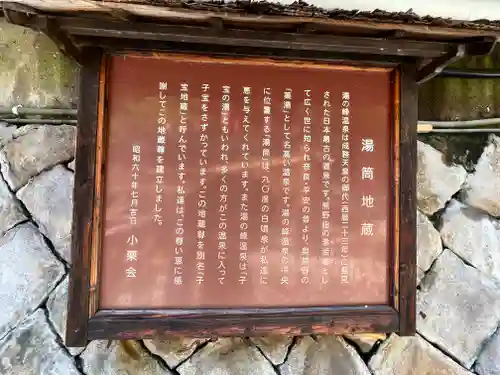 湯筒地蔵
湯の峰温泉は成務天皇の御代(西暦二十三年)に発見
された日本最古の湯垢離場です。熊野詣の
て広く世に知られ奈良・平安の昔より、
「薬湯」として名高い温泉です。湯の峰温泉の中央
に位置する「湯筒」は、九〇度の自噴泉が私達に
恵を与えてくれています。また湯の峰温泉は「子
宝の湯」ともいわれ、多くの方がこの温泉に入って
子宝をさずかっています。この地蔵尊を別名「子
宝地蔵」と呼んでいます。私達は、この尊い恵に感
謝してこの地蔵を建立しました。
昭和六十年七月吉日 小栗会